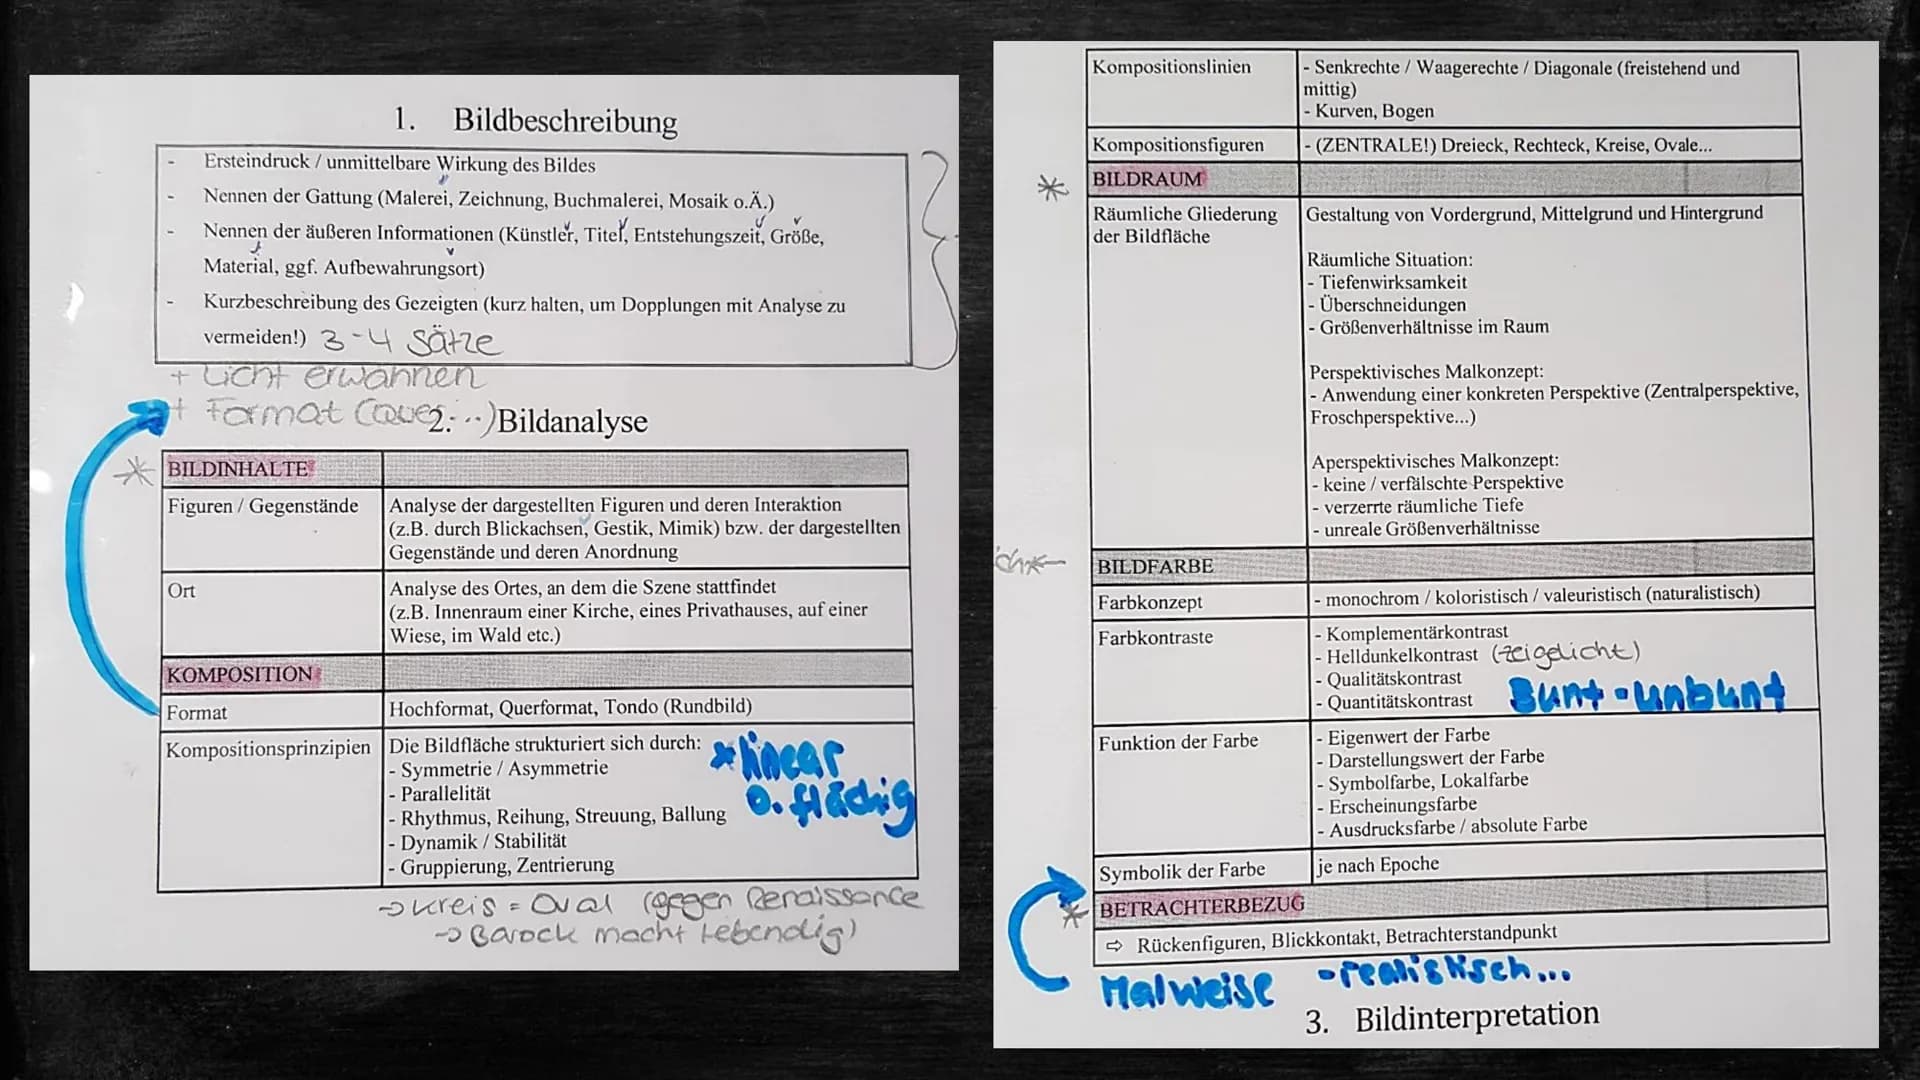 1. Bildbeschreibung
- Ersteindruck / unmittelbare Wirkung des Bildes
- Nennen der Gattung (Malerei, Zeichnung, Buchmalerei, Mosaik o.Ä.)
- Nennen der äußeren Informationen (Künstler, Titel, Entstehungszeit, Größe,
Material, ggf. Aufbewahrungsort)
- Kurzbeschreibung des Gezeigten (kurz halten, um Dopplungen mit Analyse zu
vermeiden!) 3-4 Sätze
+ Licht erwähnen
+ Format (Quer...)
2. Bildanalyse
BILDINHALTE
Figuren / Gegenstände
Analyse der dargestellten Figuren und deren Interaktion
(z.B. durch Blickachsen, Gestik, Mimik) bzw. der dargestellten
Gegenstände und deren Anordnung
Ort
Analyse des Ortes, an dem die Szene stattfindet
(z.B. Innenraum einer Kirche, eines Privathauses, auf einer
Wiese, im Wald etc.)
KOMPOSITION
Format
Hochformat, Querformat, Tondo (Rundbild)
Kompositionsprinzipien
Die Bildfläche strukturiert sich durch:
- Symmetrie / Asymmetrie
- Parallelität
- Rhythmus, Reihung, Streuung, Ballung
- Dynamik / Stabilität
- Gruppierung, Zentrierung
* linear
o. flächig
→ Kreis = Oval (gegen Renaissance
→ Barock macht lebendig)
Kompositionslinien
- Senkrechte / Waagerechte / Diagonale (freistehend und
mittig)
- Kurven, Bogen
Kompositionsfiguren
- (ZENTRALE!) Dreieck, Rechteck, Kreise, Ovale...
BILDRAUM
Räumliche Gliederung
der Bildfläche
Gestaltung von Vordergrund, Mittelgrund und Hintergrund
Räumliche Situation:
- Tiefenwirksamkeit
- Überschneidungen
- Größenverhältnisse im Raum
Perspektivisches Malkonzept:
- Anwendung einer konkreten Perspektive (Zentralperspektive,
Froschperspektive...)
Aperspektivisches Malkonzept:
- keine / verfälschte Perspektive
- verzerrte räumliche Tiefe
- unreale Größenverhältnisse
BILDFARBE
Farbkonzept
- monochrom / koloristisch / valeuristisch (naturalistisch)
Farbkontraste
- Komplementärkontrast
- Helldunkelkontrast (Zeigelicht)
- Qualitätskontrast
- Quantitätskontrast
Bunt-unbunt
Funktion der Farbe
- Eigenwert der Farbe
- Darstellungswert der Farbe
- Symbolfarbe, Lokalfarbe
- Erscheinungsfarbe
- Ausdrucksfarbe / absolute Farbe
Symbolik der Farbe
je nach Epoche
BETRACHTERBEZUG
⇨ Rückenfiguren, Blickkontakt, Betrachterstandpunkt
Malweise - realistisch...
3. Bildinterpretation